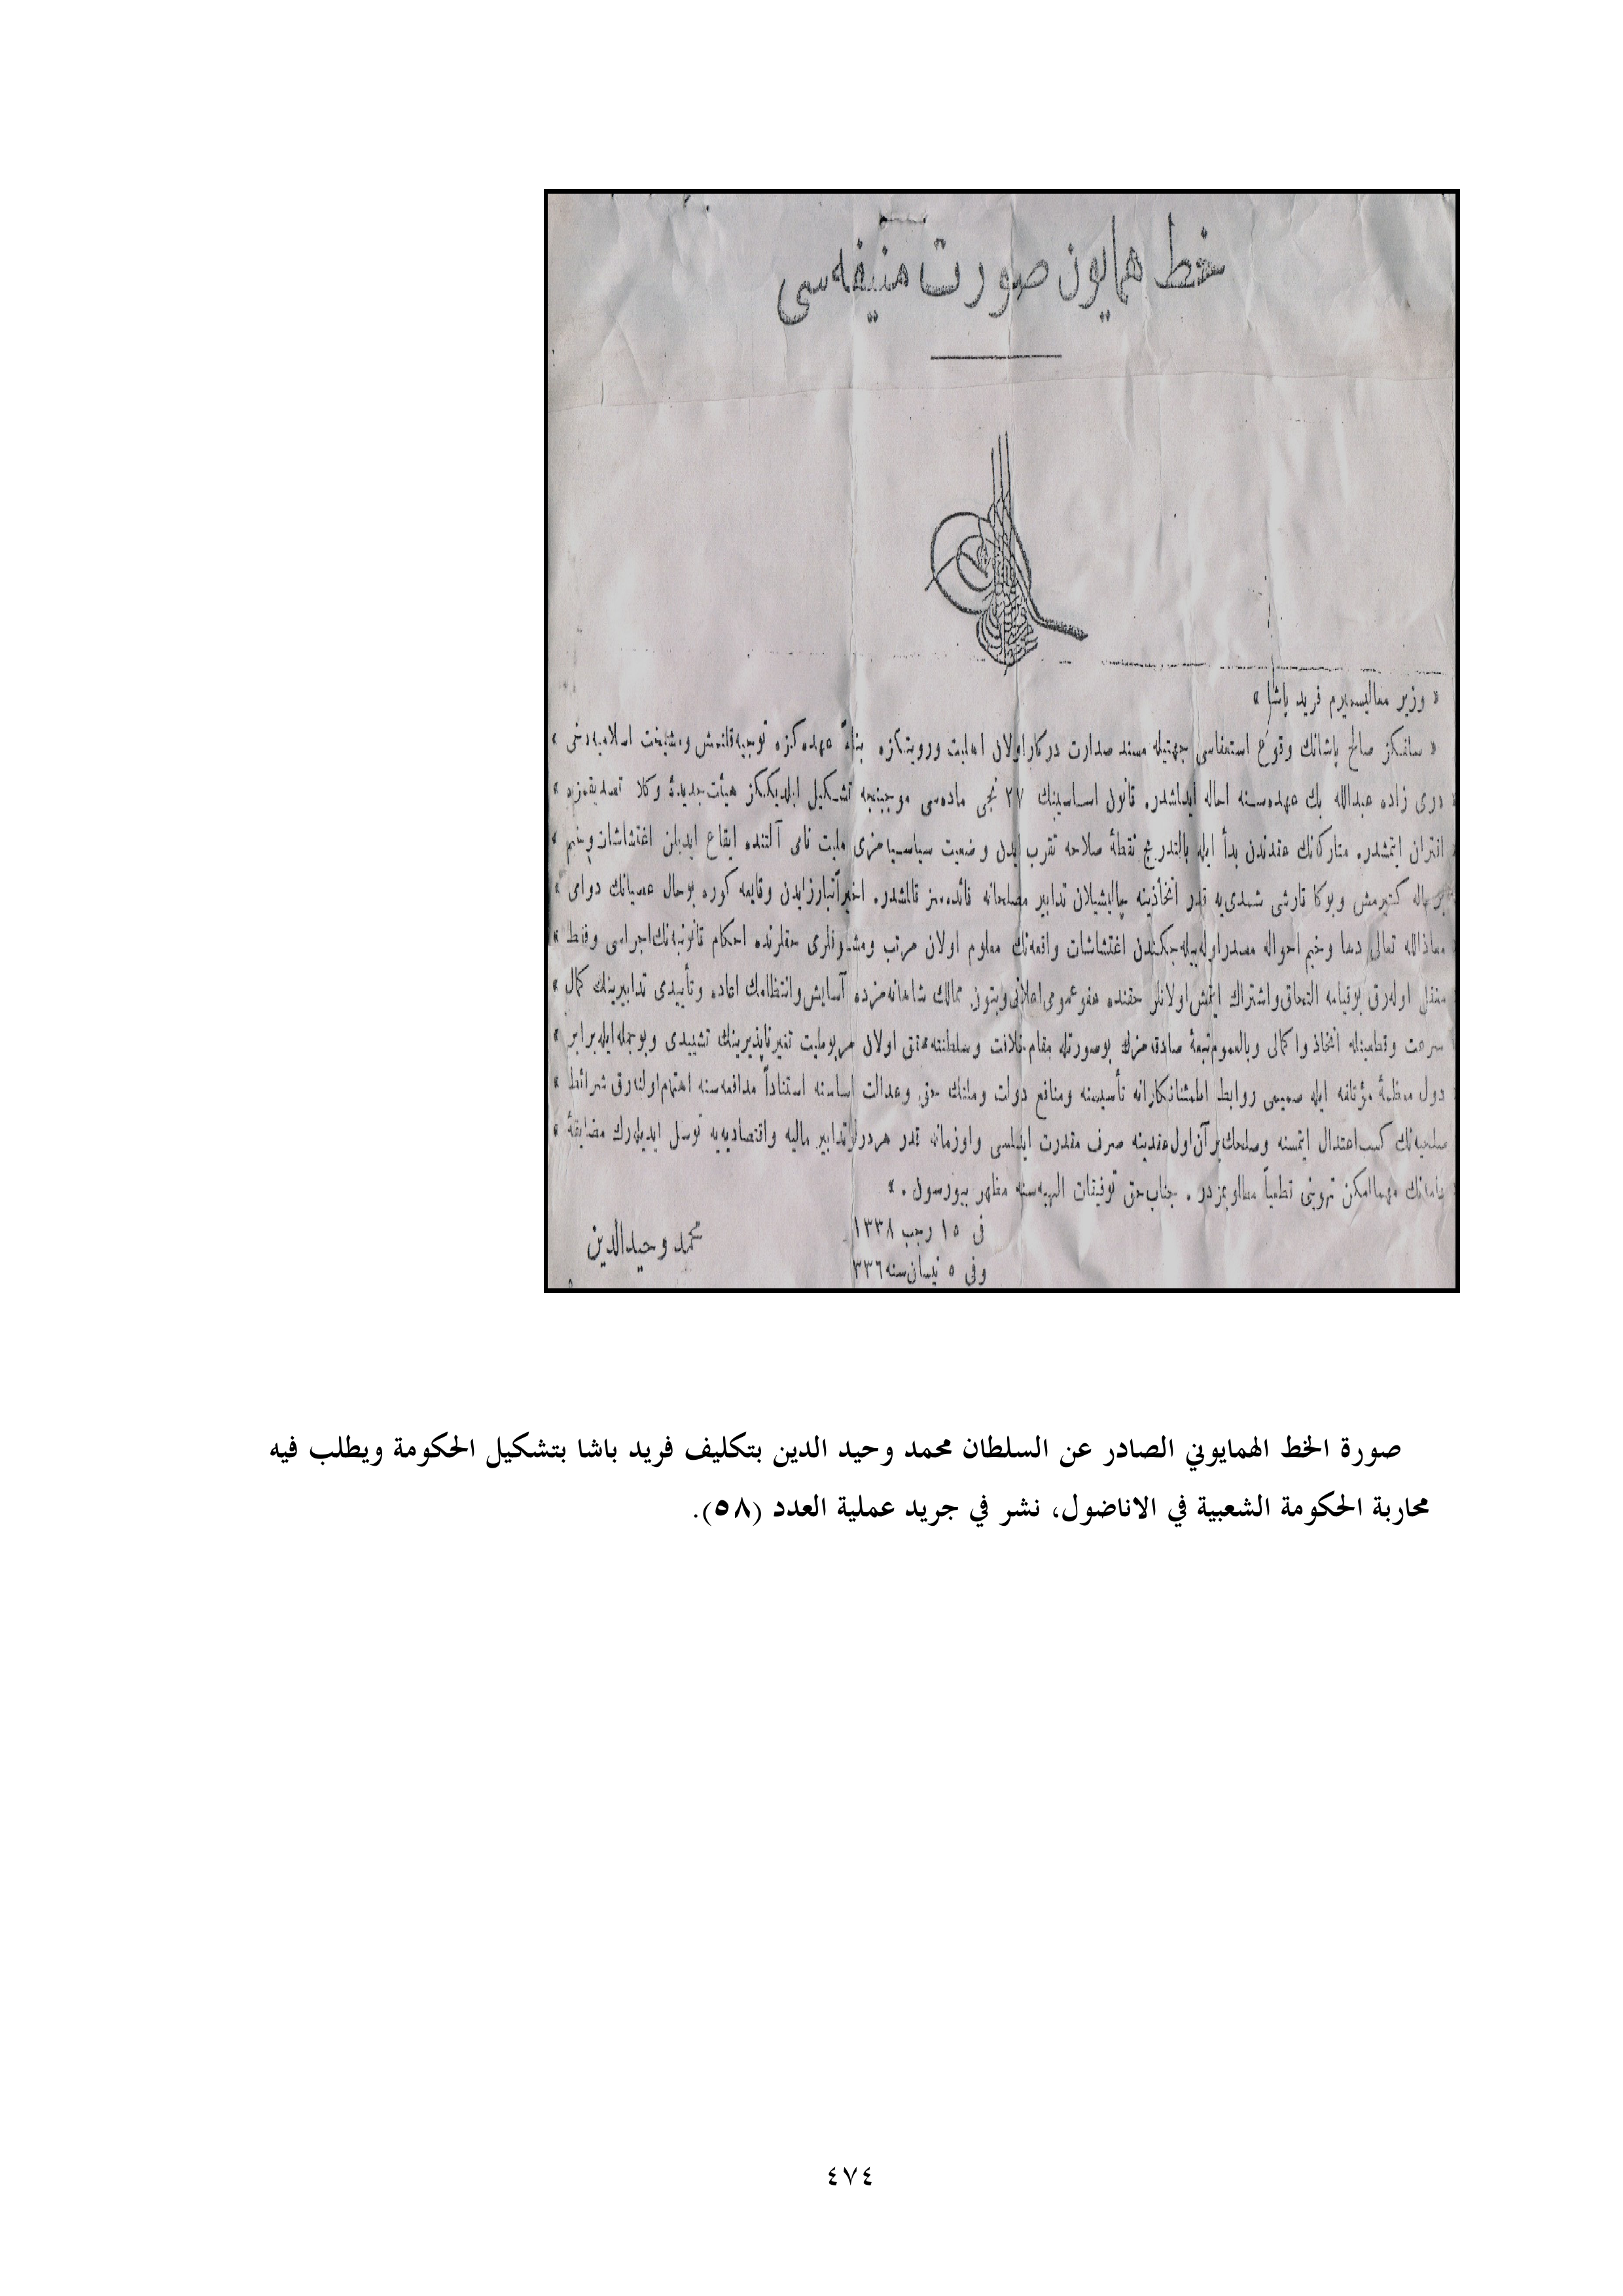 خط همايون صورت منيفه‌سی
« وزير معاليسميرم فريد پاشا »
« سلفكز صالح پاشانك وقوع استعفاسی جهتيله مسند صدارت دركار اولان اهليت ورويتكزه بناءً عهده‌كزه توجيه قلنمش ومشيخت اسلاميه دخی »
دری زاده عبدالله بك عهده‌سنه احاله ايدلمشدر. قانون اساسينك ٢٧ نجی ماده‌سی موجبنجه تشكيل ايلديككز هيئت جديدهٔ وكلا تصديقمزه »
اقتران ايتمشدر. متاركه‌نك عقدندن بدأ ايله بالتدريج نقطهٔ صلاحه تقرب ايدن وضعيت سياسيه‌مزی مليت نامی آلتنده ايقاع ايديلن اغتشاشات وخيم »
بر حاله كتيرمش وبوكا قارشی شمدی‌يه قدر اتخاذينه چاليشيلان تدابير مصلحانه فائده‌سز قالمشدر. اخيراً تبارز ايدن وقايعه كوره بو حال عصيانك دوامی »
معاذالله تعالی دها وخيم احواله مصدر اوله بيله‌جكندن اغتشاشات واقعه‌نك معلوم اولان مرتب ومشوقلری حقلرنده احكام قانونيه‌نك اجراسی وفقط »
اوله‌رق بو قيامه التحاق واشتراك ايتمش اولانلر حقنده عفو عمومی اعلانی وبتون ممالك شاهانه‌مزده آسايش وانتظامك اعاده وتأييدی تدابيرينك كمال »
سرعت وقطعيتله اتخاذ واكمالی وبالعموم تبعهٔ صادقه‌مزك بو صورتله مقام خلافت وسلطنته محقق اولان مربوطيت تغيرناپذيرينك تشييدی وبو جمله ايله برابر »
دول معظمهٔ مؤتلفه ايله صميمی روابط اطمئنانكارانه تأسيسنه ومنافع دولت وملتك حق وعدالت اساسنه استناداً مدافعه‌سنه اهتمام اولنه‌رق شرائط »
صلحيه‌نك كسب اعتدال ايتمسنه وصلحك بر آن اول عقدينه صرف مقدرت ايدلمسی واو زمانه قدر هر درلو تدابير ماليه واقتصاديه‌يه توسل ايديله‌رك مضايقهٔ »
عامه‌نك مهما امكن تهوينی قطعياً مطلوبمزدر. جناب حق توفيقات الهيه‌سنه مظهر بيورسون. »
فی ١٥ رجب ١٣٣٨
وفی ٥ نيسان سنه ٣٣٦
محمد وحيدالدين
صورة الخط الهمايوني الصادر عن السلطان محمد وحيد الدين بتكليف فريد باشا بتشكيل الحكومة ويطلب فيه
محاربة الحكومة الشعبية في الاناضول، نشر في جريد عملية العدد (٥٨).
٤٧٤